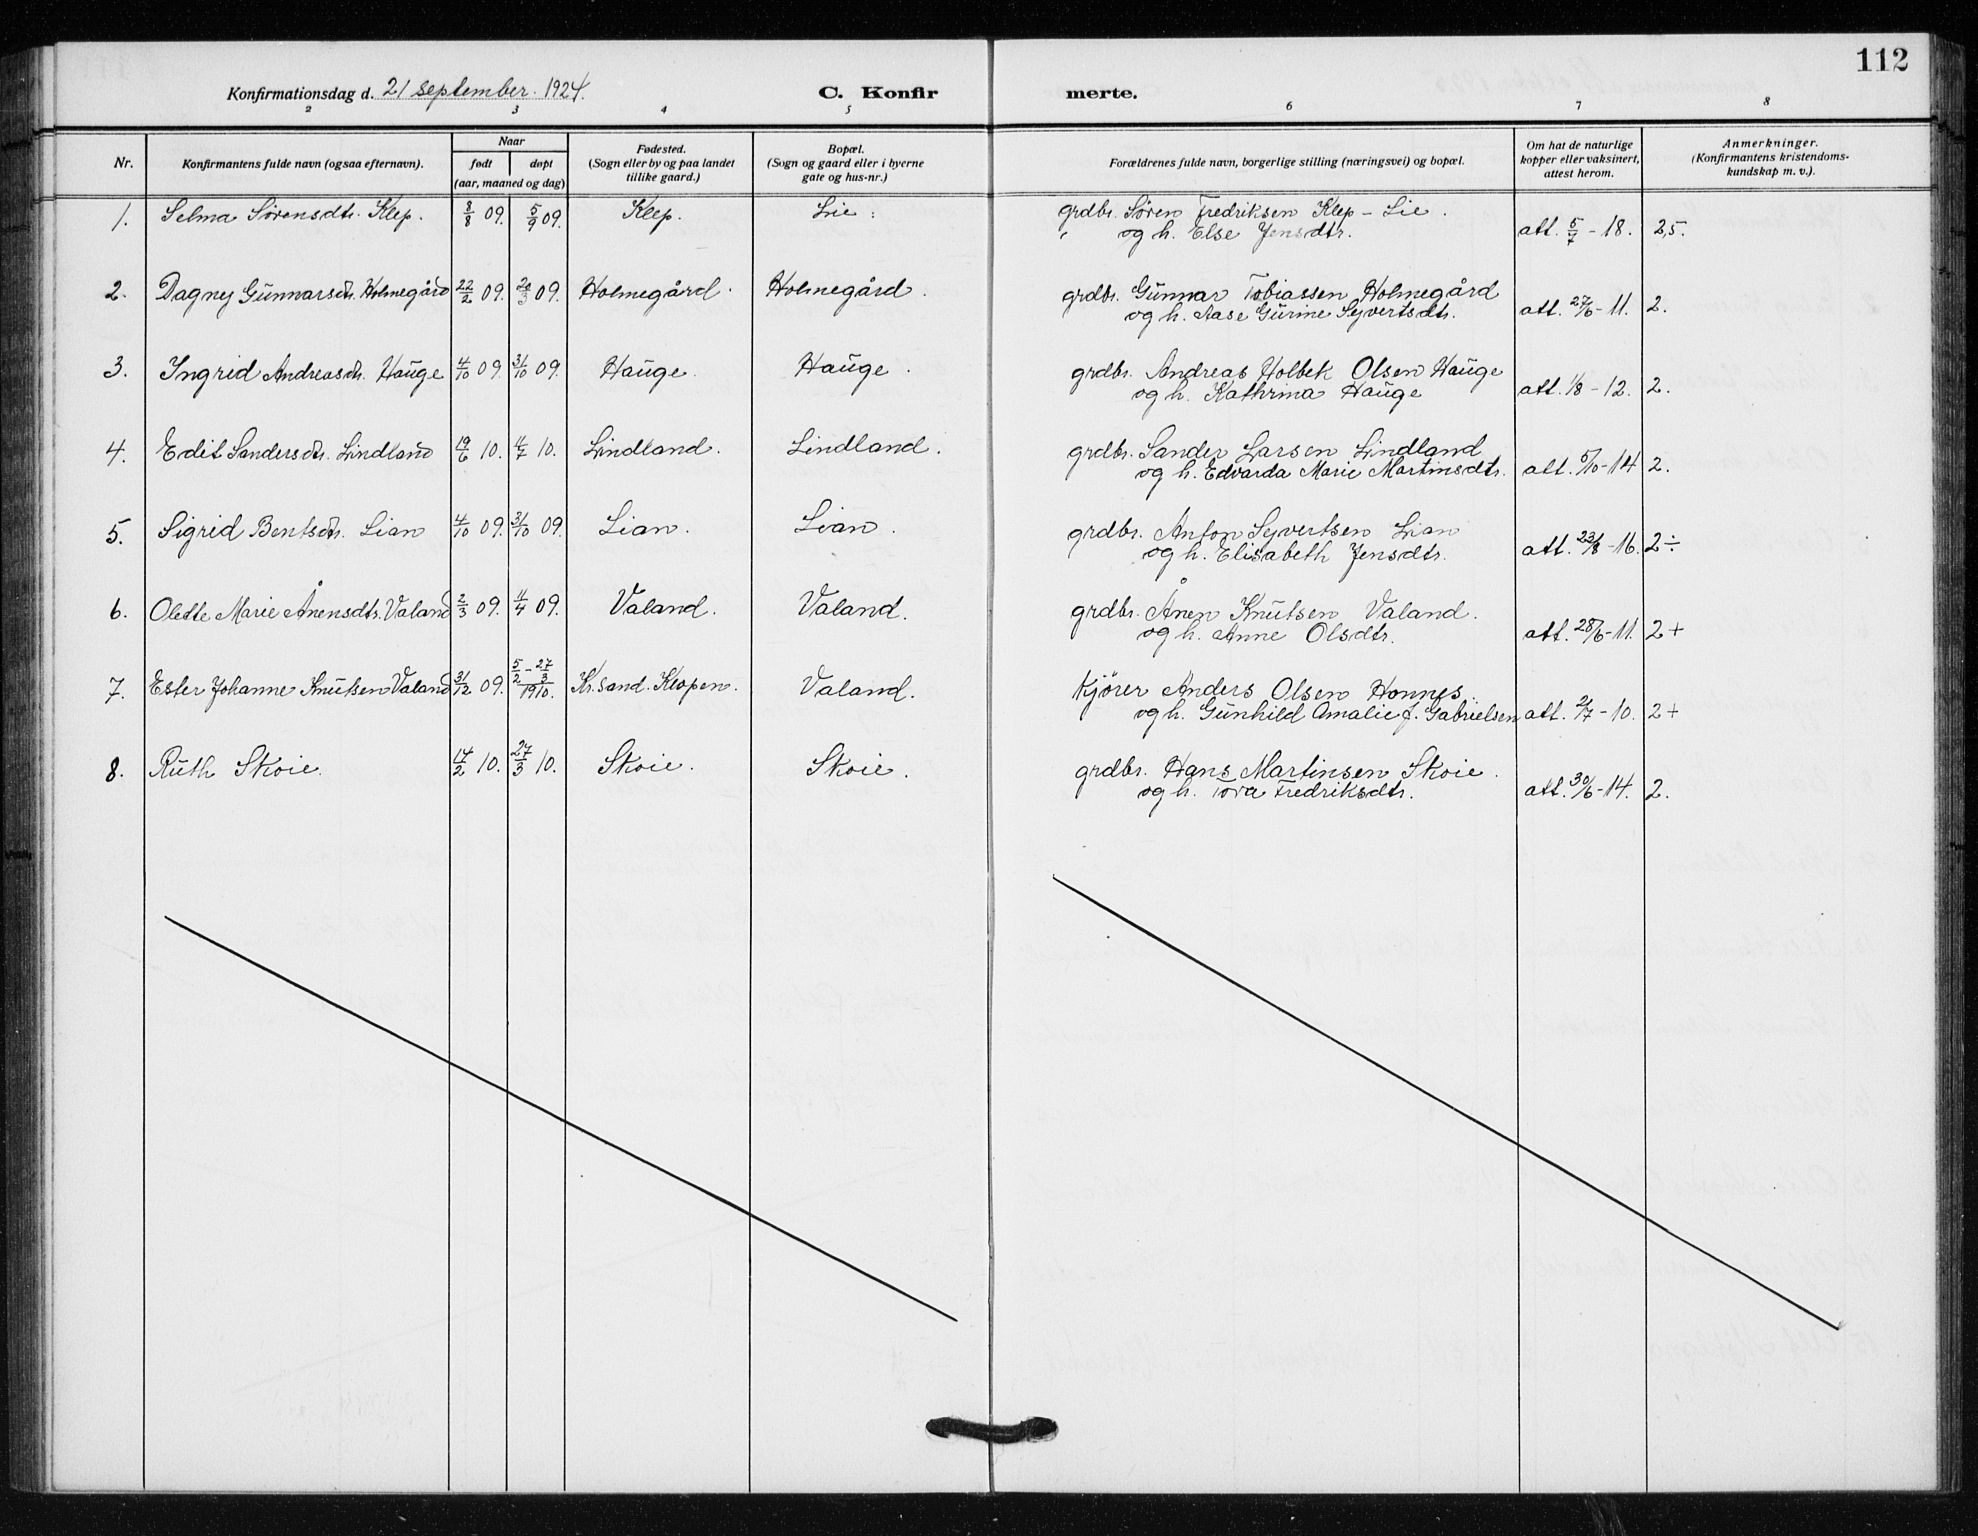 112
Konfirmationsdag d. 21 september. 1924.
C. Konfir merte.
2 3 4 5 6 7 8
Nr.
Konfirmantens fulde navn (ogsaa efternavn).
Naar
født
døpt
(aar, maaned og dag)
Fødested.
(Sogn eller by og paa landet
tillike gaard.)
Bopæl.
(Sogn og gaard eller i byerne
gate og hus-nr.)
Forældrenes fulde navn, borgerlige stilling (næringsvei) og bopæl.
Om hat de naturlige
kopper eller vaksinert,
attest herom.
Anmerkninger.
(Konfirmantens kristendoms-
kundskap m. v.).
1. Selma Sørensdtr. Klep. 8/8 09. 5/9 09. Klep. Lie. grdbr. Søren Fredriksen Klep - Lie.
og h. Else Jensdtr. att. 5/7 - 18. 2,5.
2. Dagney Gunnarsdtr. Holmegård 22/2 09. 20/3 09. Holmegård. Holmegård. grdbr. Gunnar Tobiassen Holmegård
og h. Aase Gurine Syvertsdtr. att. 27/6 - 11. 2.
3. Ingrid Andreasdtr. Hauge 4/10 09. 31/10 09. Hauge. Hauge. grdbr. Andreas Holbek Olsen Hauge
og h. Kathrina Hauge att. 1/8 - 12. 2.
4. Edit Sandersdtr. Lindland 19/6 10. 4/7 10. Lindland. Lindland. grdbr. Sander Larsen Lindland
og h. Edvarda Marie Martinsdtr. att. 5/10 - 14 2.
5. Sigrid Bentsdtr. Lian 4/10 09. 31/10 09. Lian. Lian. grdbr. Anton Syvertsen Lian
og h. Elisabeth Jensdtr. att. 23/8 - 16. 2÷
6. Olette Marie Ånensdtr. Valand 2/3 09. 11/4 09. Valand. Valand. grdbr. Ånen Knutsen Valand.
og h. Anne Olsdtr. att. 28/6 - 11. 2+
7. Ester Johanne Knutsen Valand 31/12 09. 5/2 - 27/3 1910. Kr.sand. Klopen. Valand. Kjører Anders Olsen Honnes.
og h. Gunhild Amalie f. Gabrielsen att. 2/7 - 10. 2+
8. Ruth Skoie. 14/2 10. 27/3 10. Skoie. Skoie. grdbr. Hans Martinsen Skoie.
og h. Tora Fredriksdtr. att. 30/6 - 14. 2.